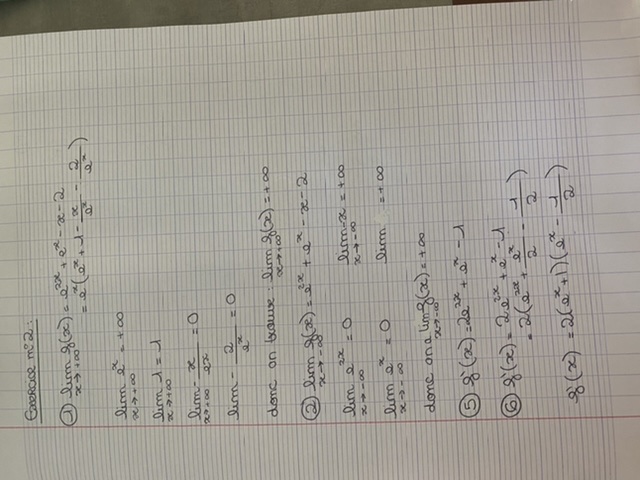 Exercice n°2:
① lim g(x) = e^2x + e^x - x - 2
x→+∞
= e^x (e^x + 1 - x/e^x - 2/e^x)
lim e^x = +∞
x→+∞
lim 1 = 1
x→+∞
lim - x/e^x = 0
x→+∞
lim - 2/e^x = 0
donc on trouve : lim g(x) = +∞
x→+∞
② lim g(x) = e^2x + e^x - x - 2
x→-∞
lim e^2x = 0 lim -x = +∞
x→-∞ x→-∞
lim e^x = 0 lim = +∞
x→-∞
donc on a lim g(x) = +∞
x→-∞
⑤ g'(x) = 2e^2x + e^x - 1
⑥ g'(x) = 2e^2x + e^x - 1
= 2(e^2x + e^x/2 - 1/2)
g'(x) = 2(e^x + 1)(e^x - 1/2)